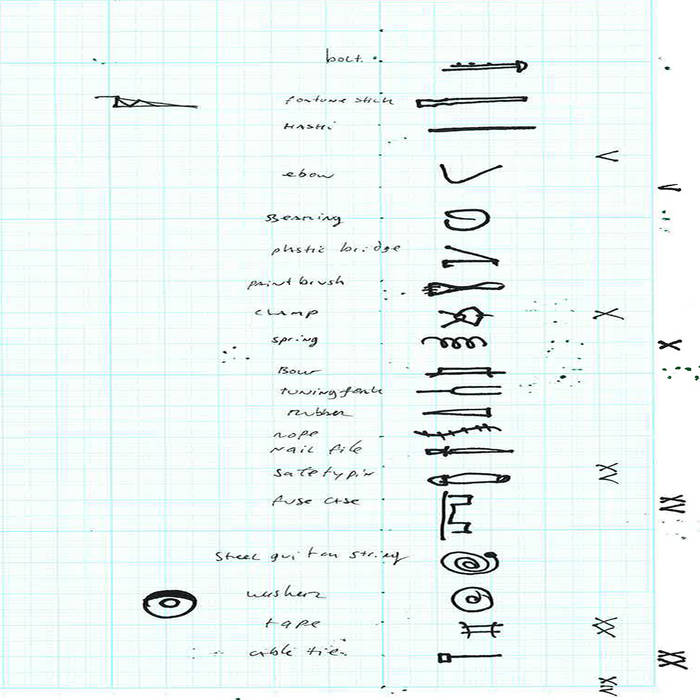 bolt.
fortune stick
HASHI
ebow
Bearing
plastic bridge
paint brush
CLAMP
spring
Bow
tuning fork
rubber
rope
NAIL file
safetypin
fuse case
Steel guitar string
washers
tape
cable ties